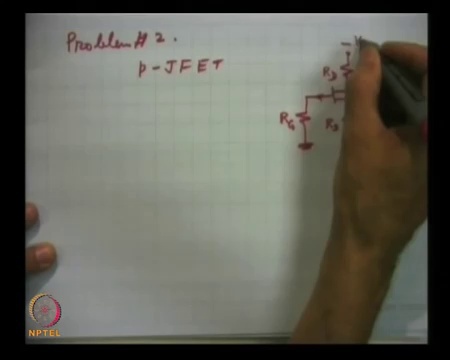 Problem # 2.
p-JFET
R_D
R_G
R_S
NPTEL